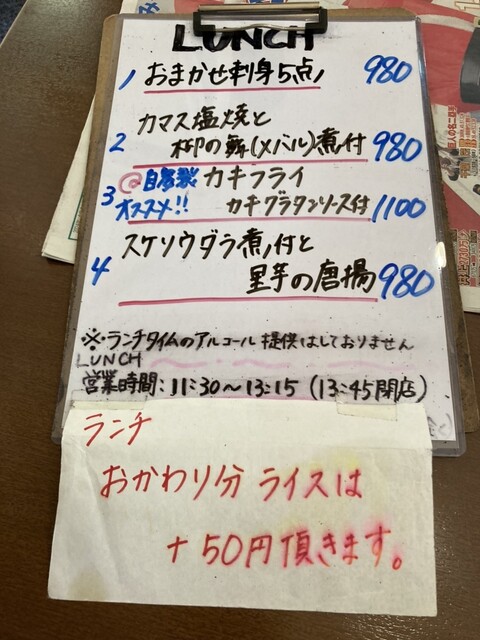 LUNCH
1 おまかせ刺身5点 980
2 カマス塩焼と
柳の舞(メバル)煮付 980
3 @自家製 カキフライ
オススメ!! カキグラタンソース付 1100
4 スケソウダラ煮付と
里芋の唐揚 980
※・ランチタイムのアルコール提供はしておりません
LUNCH
営業時間:11:30~13:15 (13:45閉店)
ランチ
おかわり分 ライスは
+50円頂きます。